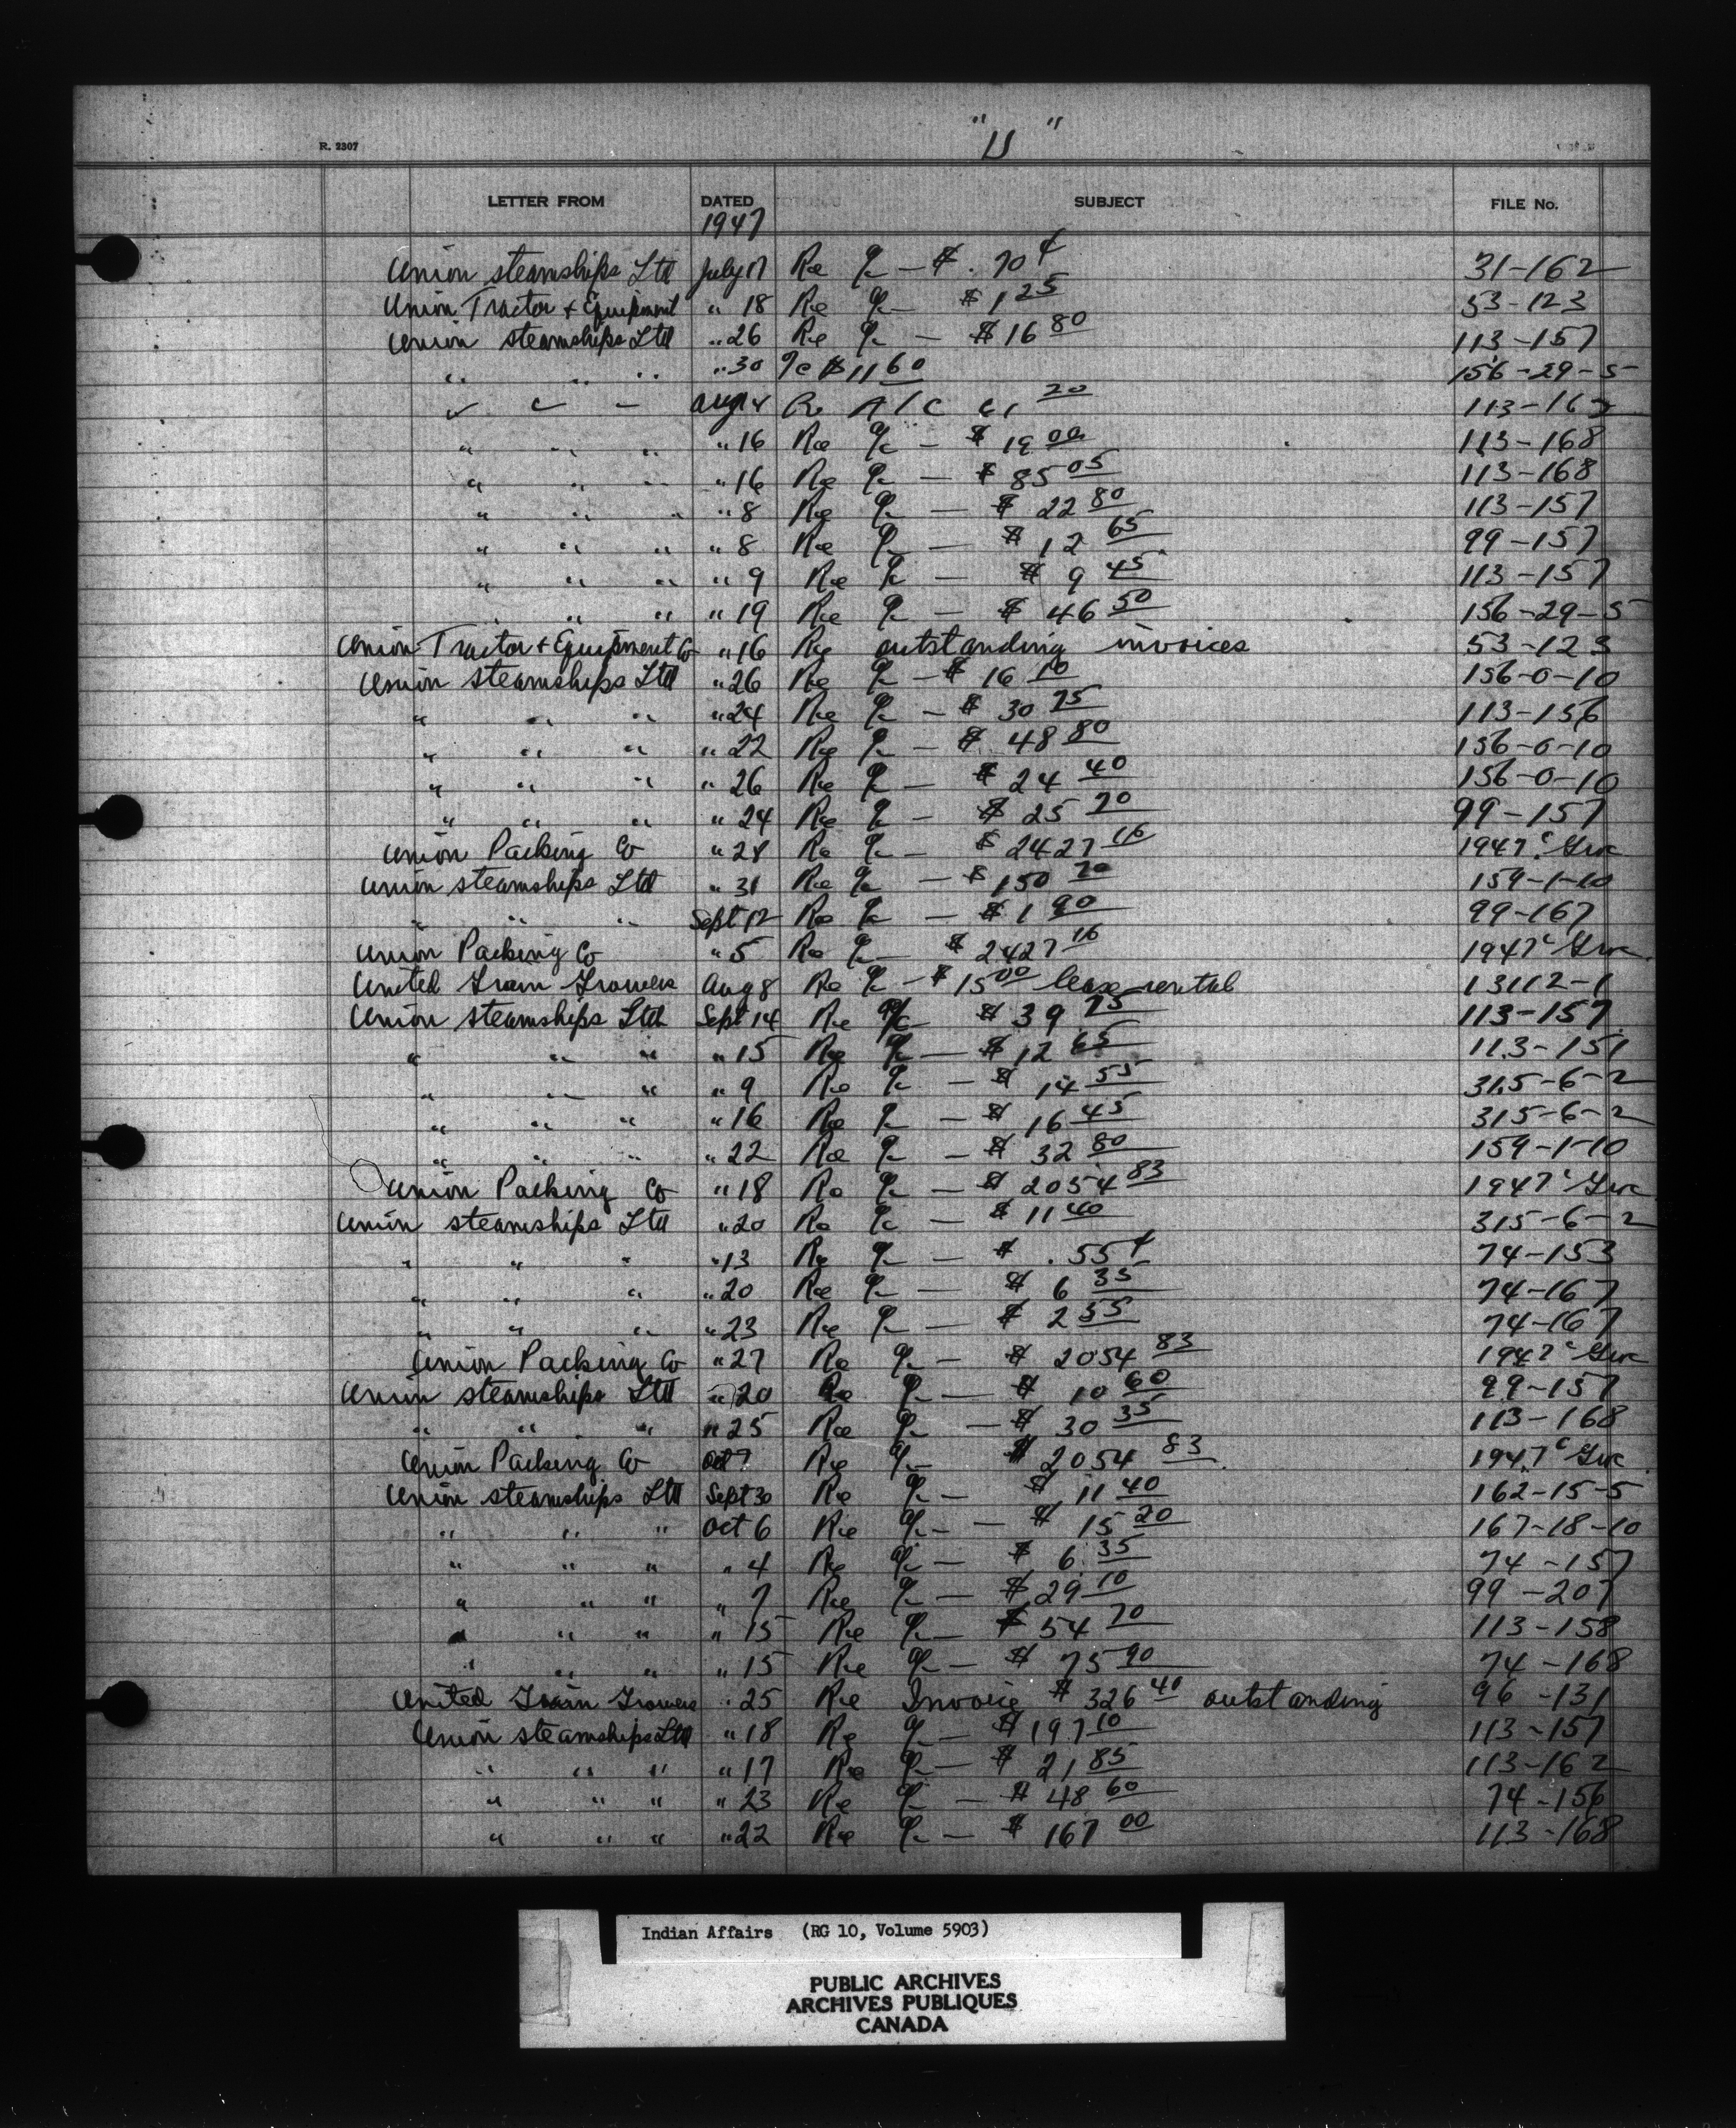 "U"
R. 2307
LETTER FROM DATED SUBJECT FILE No.
1947
Union steamships Ltd July 17 Re a/c — $ .70 ¢ 31-162
Union Tractor + Equipment " 18 Re a/c — $ 1 25 53-123
Union steamships Ltd " 26 Re a/c — $ 16 80 113-157
" " " " 30 a/c $ 11 60 156-29-5
" " " Aug 4 Re A/C 61 20 113-162
" " " " 16 Re a/c — $ 19 00 113-168
" " " " 16 Re a/c — $ 85 05 113-168
" " " " 8 Re a/c — $ 22 80 113-157
" " " " 8 Re a/c — $ 12 65 99-157
" " " " 9 Re a/c — $ 9 45 113-157
" " " " 19 Re a/c — $ 46 50 156-29-5
Union Tractor + Equipment Co " 16 Re outstanding invoices 53-123
Union steamships Ltd " 26 Re a/c — $ 16 10 156-0-10
" " " " 24 Re a/c — $ 30 75 113-156
" " " " 22 Re a/c — $ 48 80 156-0-10
" " " " 26 Re a/c — $ 24 40 156-0-10
" " " " 24 Re a/c — $ 25 70 99-157
Union Packing Co " 28 Re a/c — $ 2427 16 1947
Union steamships Ltd " 31 Re a/c — $ 150 70 159-1-10
" " " Sept 12 Re a/c — $ 1 90 99-167
Union Packing Co " 5 Re a/c — $ 2427 16 1947
United Grain Growers Aug 8 Re a/c — $ 15 00 lease rental 13112-1
Union steamships Ltd Sept 14 Re a/c $ 39 75 113-157
" " " " 15 Re a/c — $ 12 65 113-151
" " " " 9 Re a/c — $ 14 55 315-6-2
" " " " 16 Re a/c — $ 16 45 315-6-2
" " " " 22 Re a/c — $ 32 80 159-1-10
Union Packing Co " 18 Re a/c — $ 2054 83 1947
Union steamships Ltd " 20 Re a/c — $ 11 40 315-6-2
" " " " 13 Re a/c — $ .55 ¢ 74-153
" " " " 20 Re a/c — $ 6 35 74-167
" " " " 23 Re a/c — $ 2 55 74-167
Union Packing Co " 27 Re a/c — $ 2054 83 1947
Union steamships Ltd " 20 Re a/c — $ 10 60 99-157
" " " " 25 Re a/c — $ 30 35 113-168
Union Packing Co Oct 7 Re a/c $ 2054 83 1947
Union steamships Ltd Sept 30 Re a/c — $ 11 40 162-15-5
" " " Oct 6 Re a/c — $ 15 20 167-18-10
" " " " 4 Re a/c — $ 6 35 74-157
" " " " 7 Re a/c — $ 29 10 99-207
" " " " 15 Re a/c — $ 54 70 113-158
" " " " 15 Re a/c — $ 75 90 74-168
United Grain Growers " 25 Re Invoice $ 326 40 outstanding 96-131
Union steamships Ltd " 18 Re a/c — $ 197 10 113-157
" " " " 17 Re a/c — $ 21 85 113-162
" " " " 23 Re a/c — $ 48 60 74-156
" " " " 22 Re a/c — $ 167 00 113-168
Indian Affairs (RG 10, Volume 5903)
PUBLIC ARCHIVES
ARCHIVES PUBLIQUES
CANADA